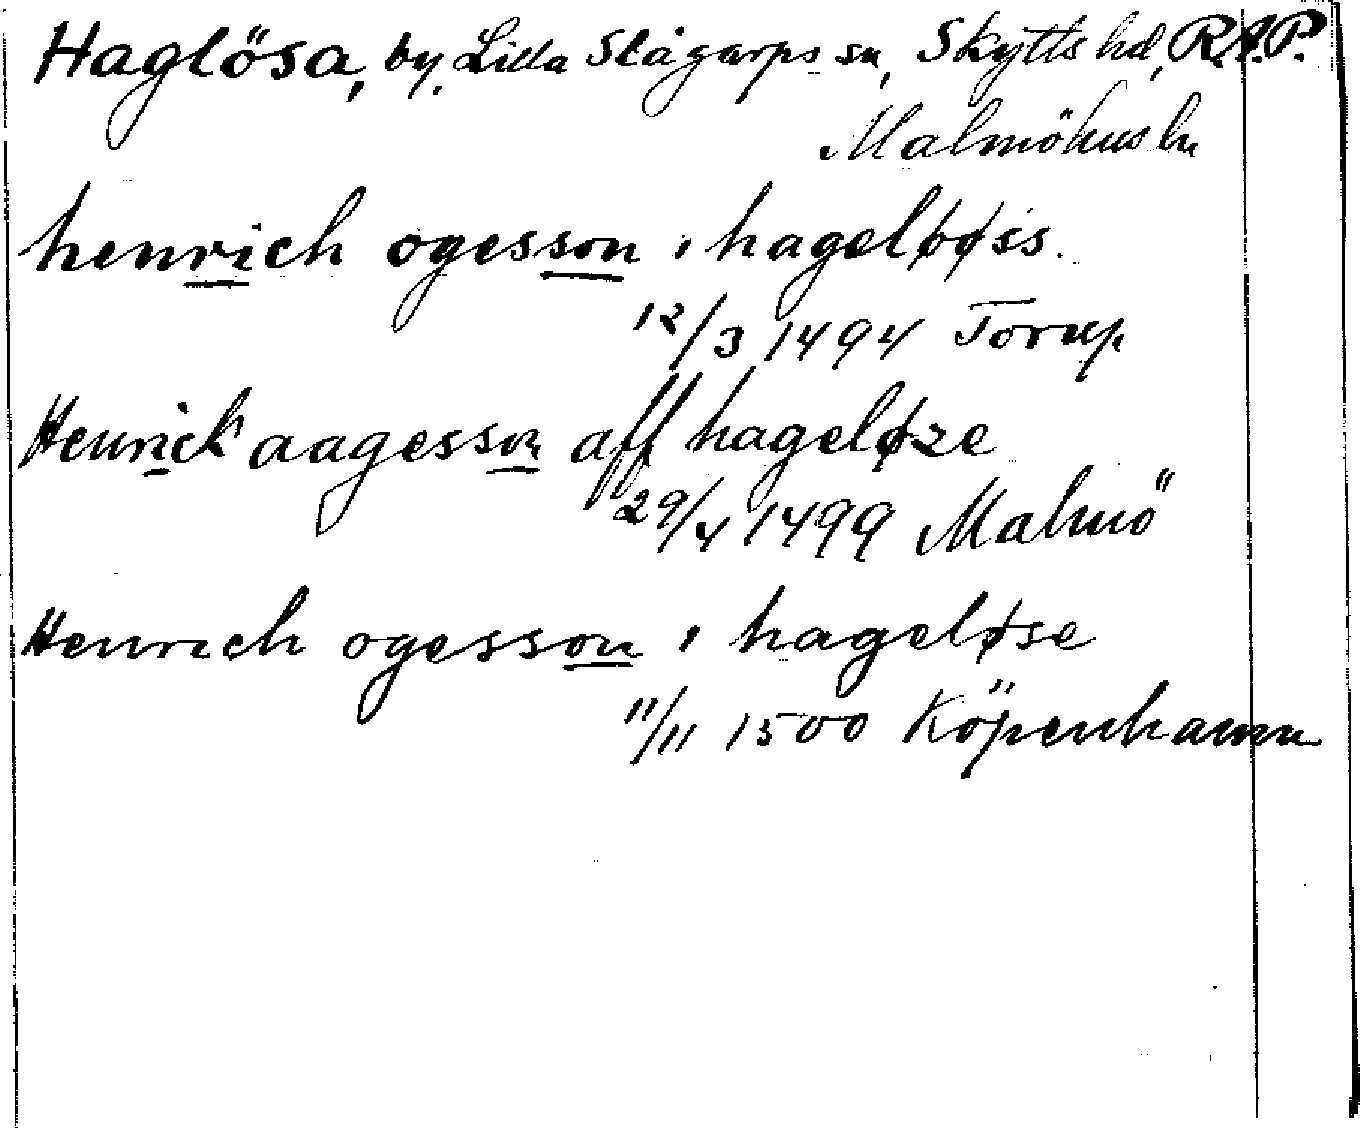 Haglösa, by, Lilla Slågarps sn, Skytts hd, R.A.P.
Malmöhus ln
henrich ogesson i hageløøss.
12/3 1494 Torup
Henrick aagesson aff hageløze
29/4 1499 Malmö
Henrich ogesson i hageløse
11/11 1500 Köpenhamn